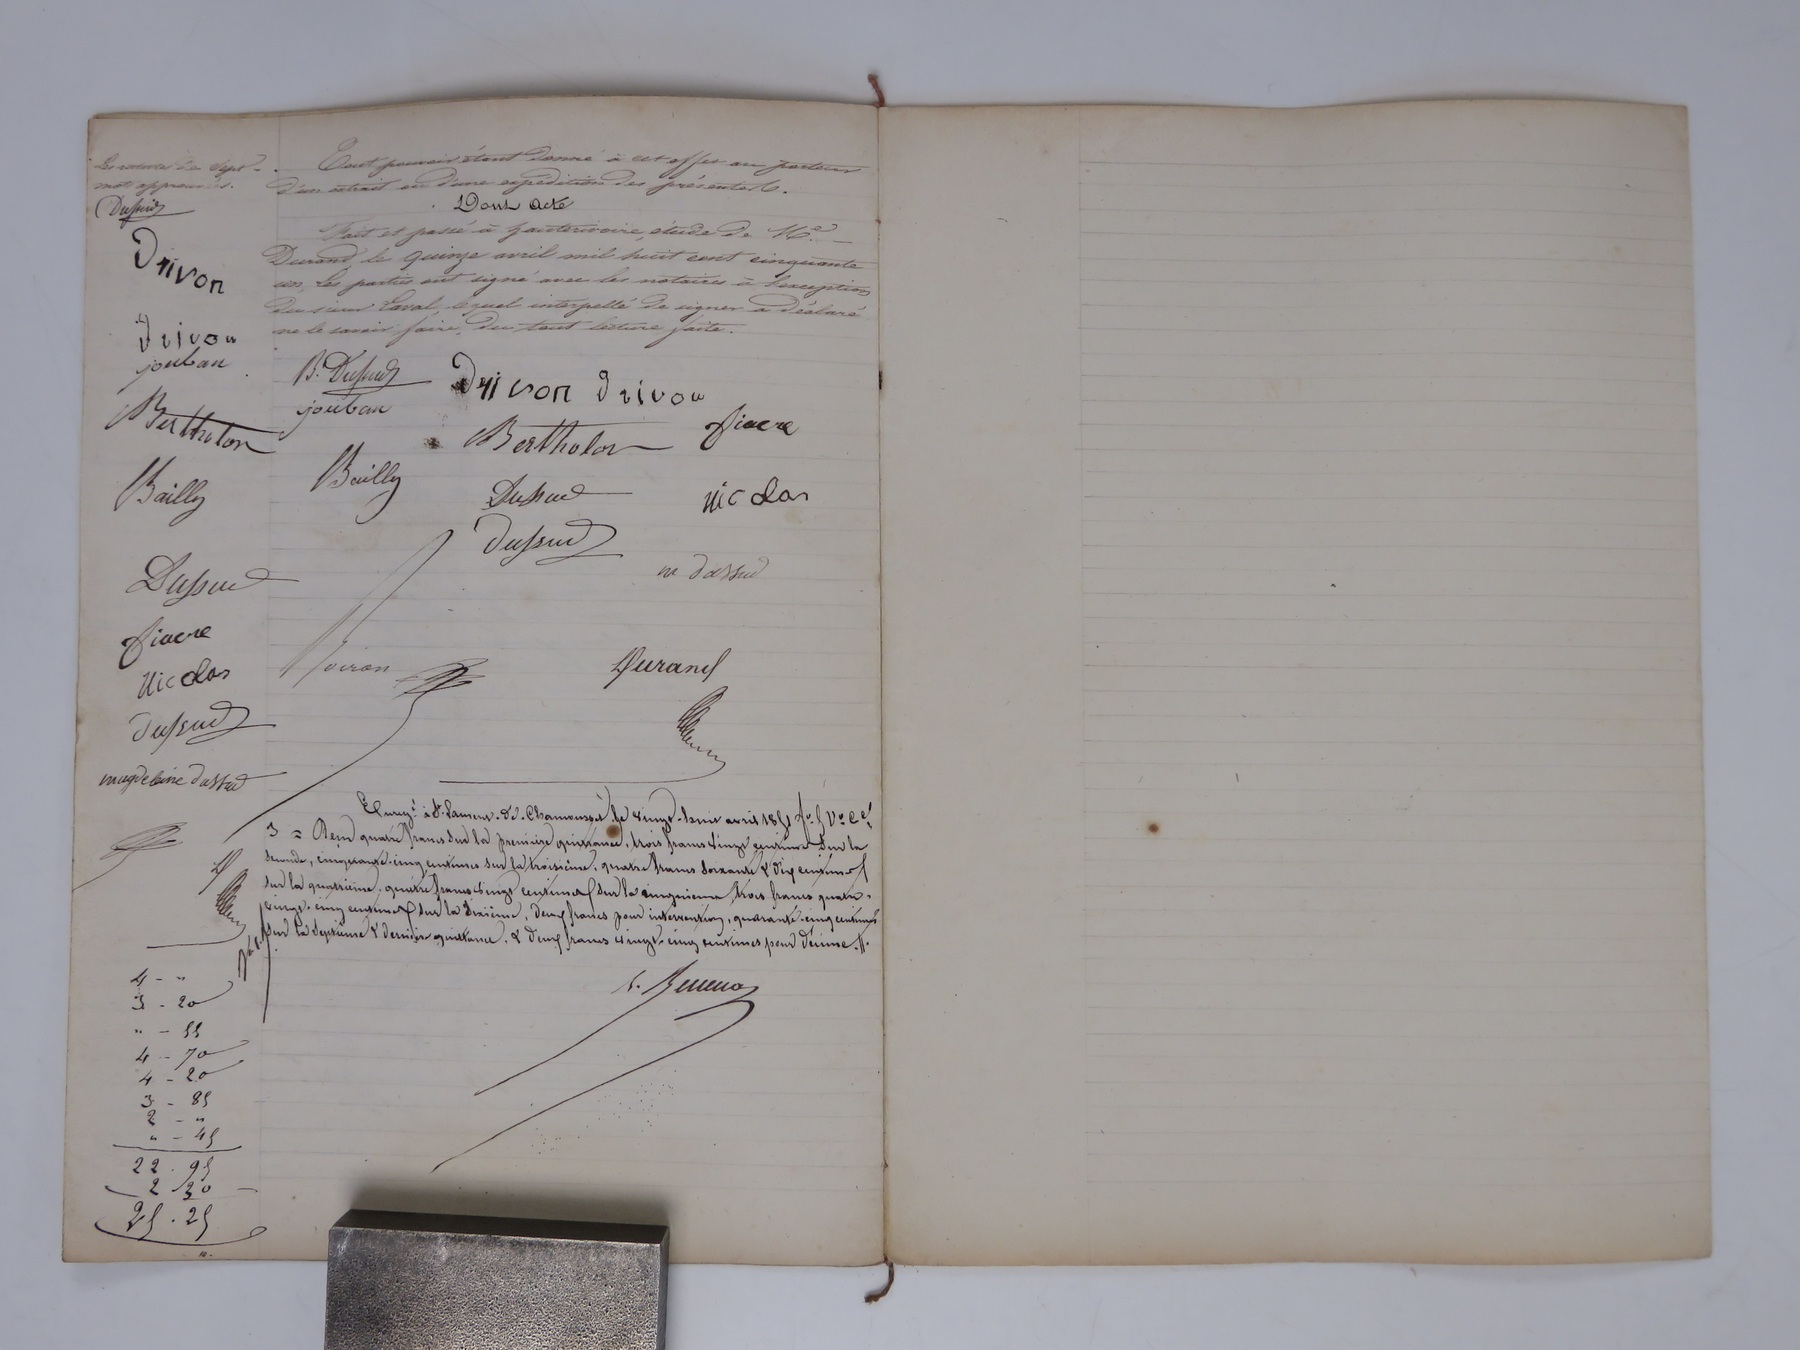 La rature de sept
mots approuvés.
Dussud
Drivon
Drivon
jouban
Bertholon
Bailly
Dussud
fiacre
Nicolas
Dussud
magdeleine dassud
Tout pouvoir étant donné à cet effet au porteur
d'un extrait ou d'une expédition des présentes.
Dont acte
Fait et passé à hauterivoire, étude de Me
Durand, le quinze avril mil huit cent cinquante
un, Les parties ont signé avec les notaires à l'exception
du sieur Laval, lequel interpellé de signer a déclaré
ne le savoir faire, du tout lecture faite.
B. Dussud Drivon Drivon
jouban Bertholon fiacre
Bailly Dussud Nicolas
Dussud
m dassud
Voiron Durand
Enregé à St. Laurent-de-Chamousset le vingt-huit avril 1851 fo. 5 Vo. Ces
3 = Reçu quatre francs sur la première quittance, trois francs vingt centimes sur la
seconde, cinquante-cinq centimes sur la troisième, quatre francs soixante & dix centimes
sur la quatrième, quatre francs vingt centimes sur la cinquième, trois francs quatre-
vingt-cinq centimes sur la sixième, deux francs pour intervention, quarante-cinq centimes
sur la septième & dernière quittance, & deux francs vingt-cinq centimes pour décime.
4 - "
3 - 20
" - 55
4 - 70
4 - 20
3 - 85
2 - "
" - 45
22 . 95
2 30
25 . 25